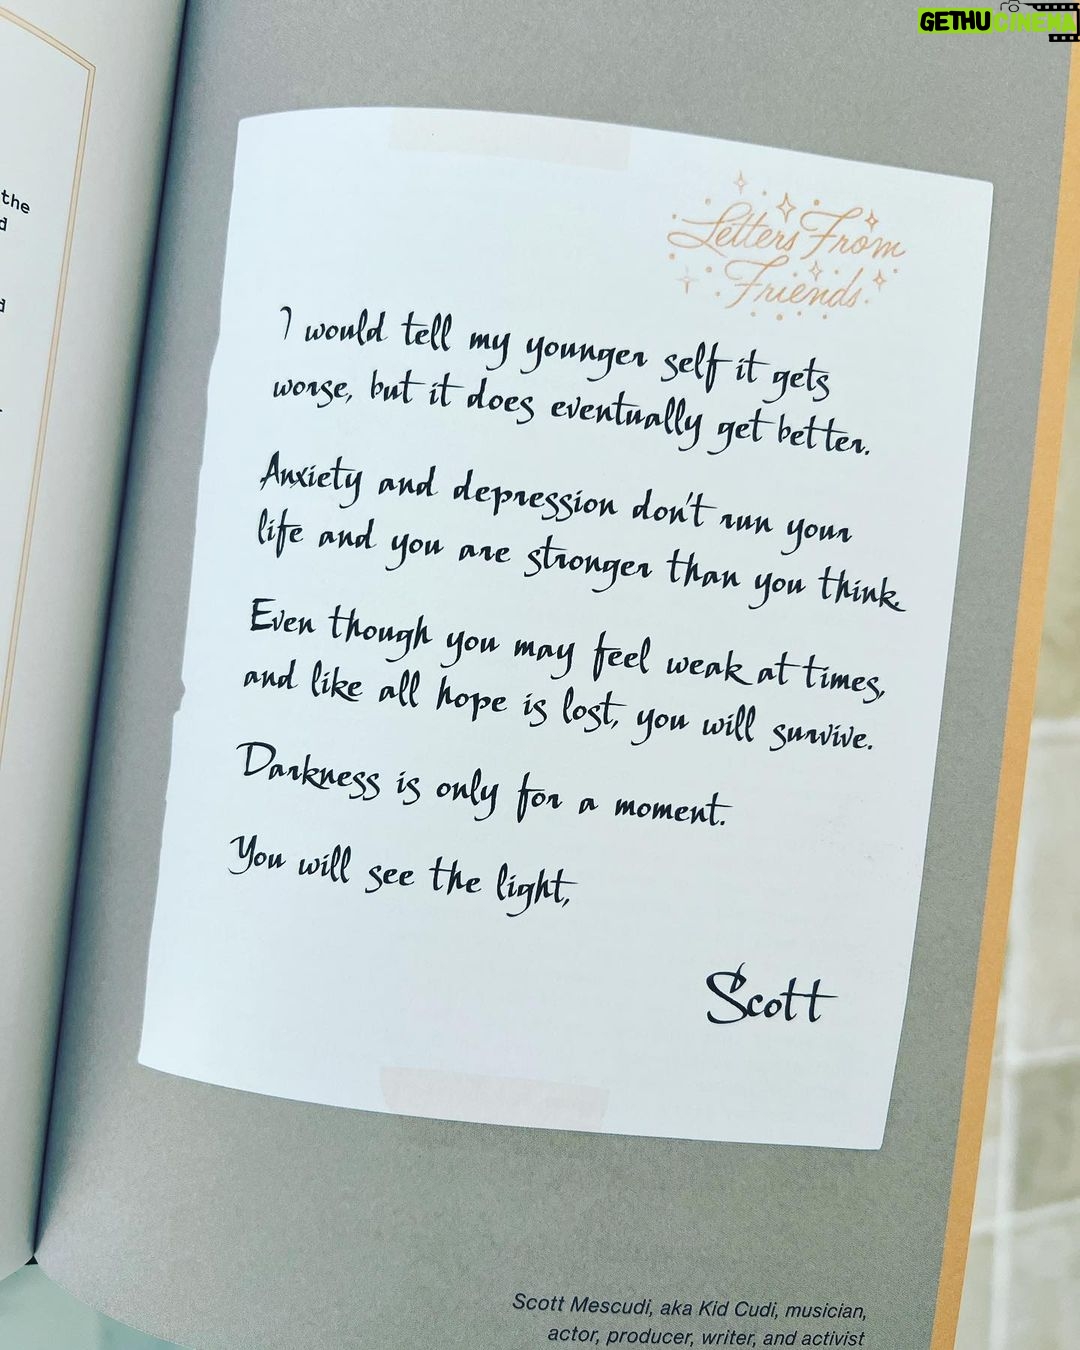 GETHUCINEMA
the
d
d
Letters From
Friends
I would tell my younger self it gets
worse, but it does eventually get better.
Anxiety and depression don't run your
life and you are stronger than you think.
Even though you may feel weak at times,
and like all hope is lost, you will survive.
Darkness is only for a moment.
You will see the light,
Scott
Scott Mescudi, aka Kid Cudi, musician,
actor, producer, writer, and activist